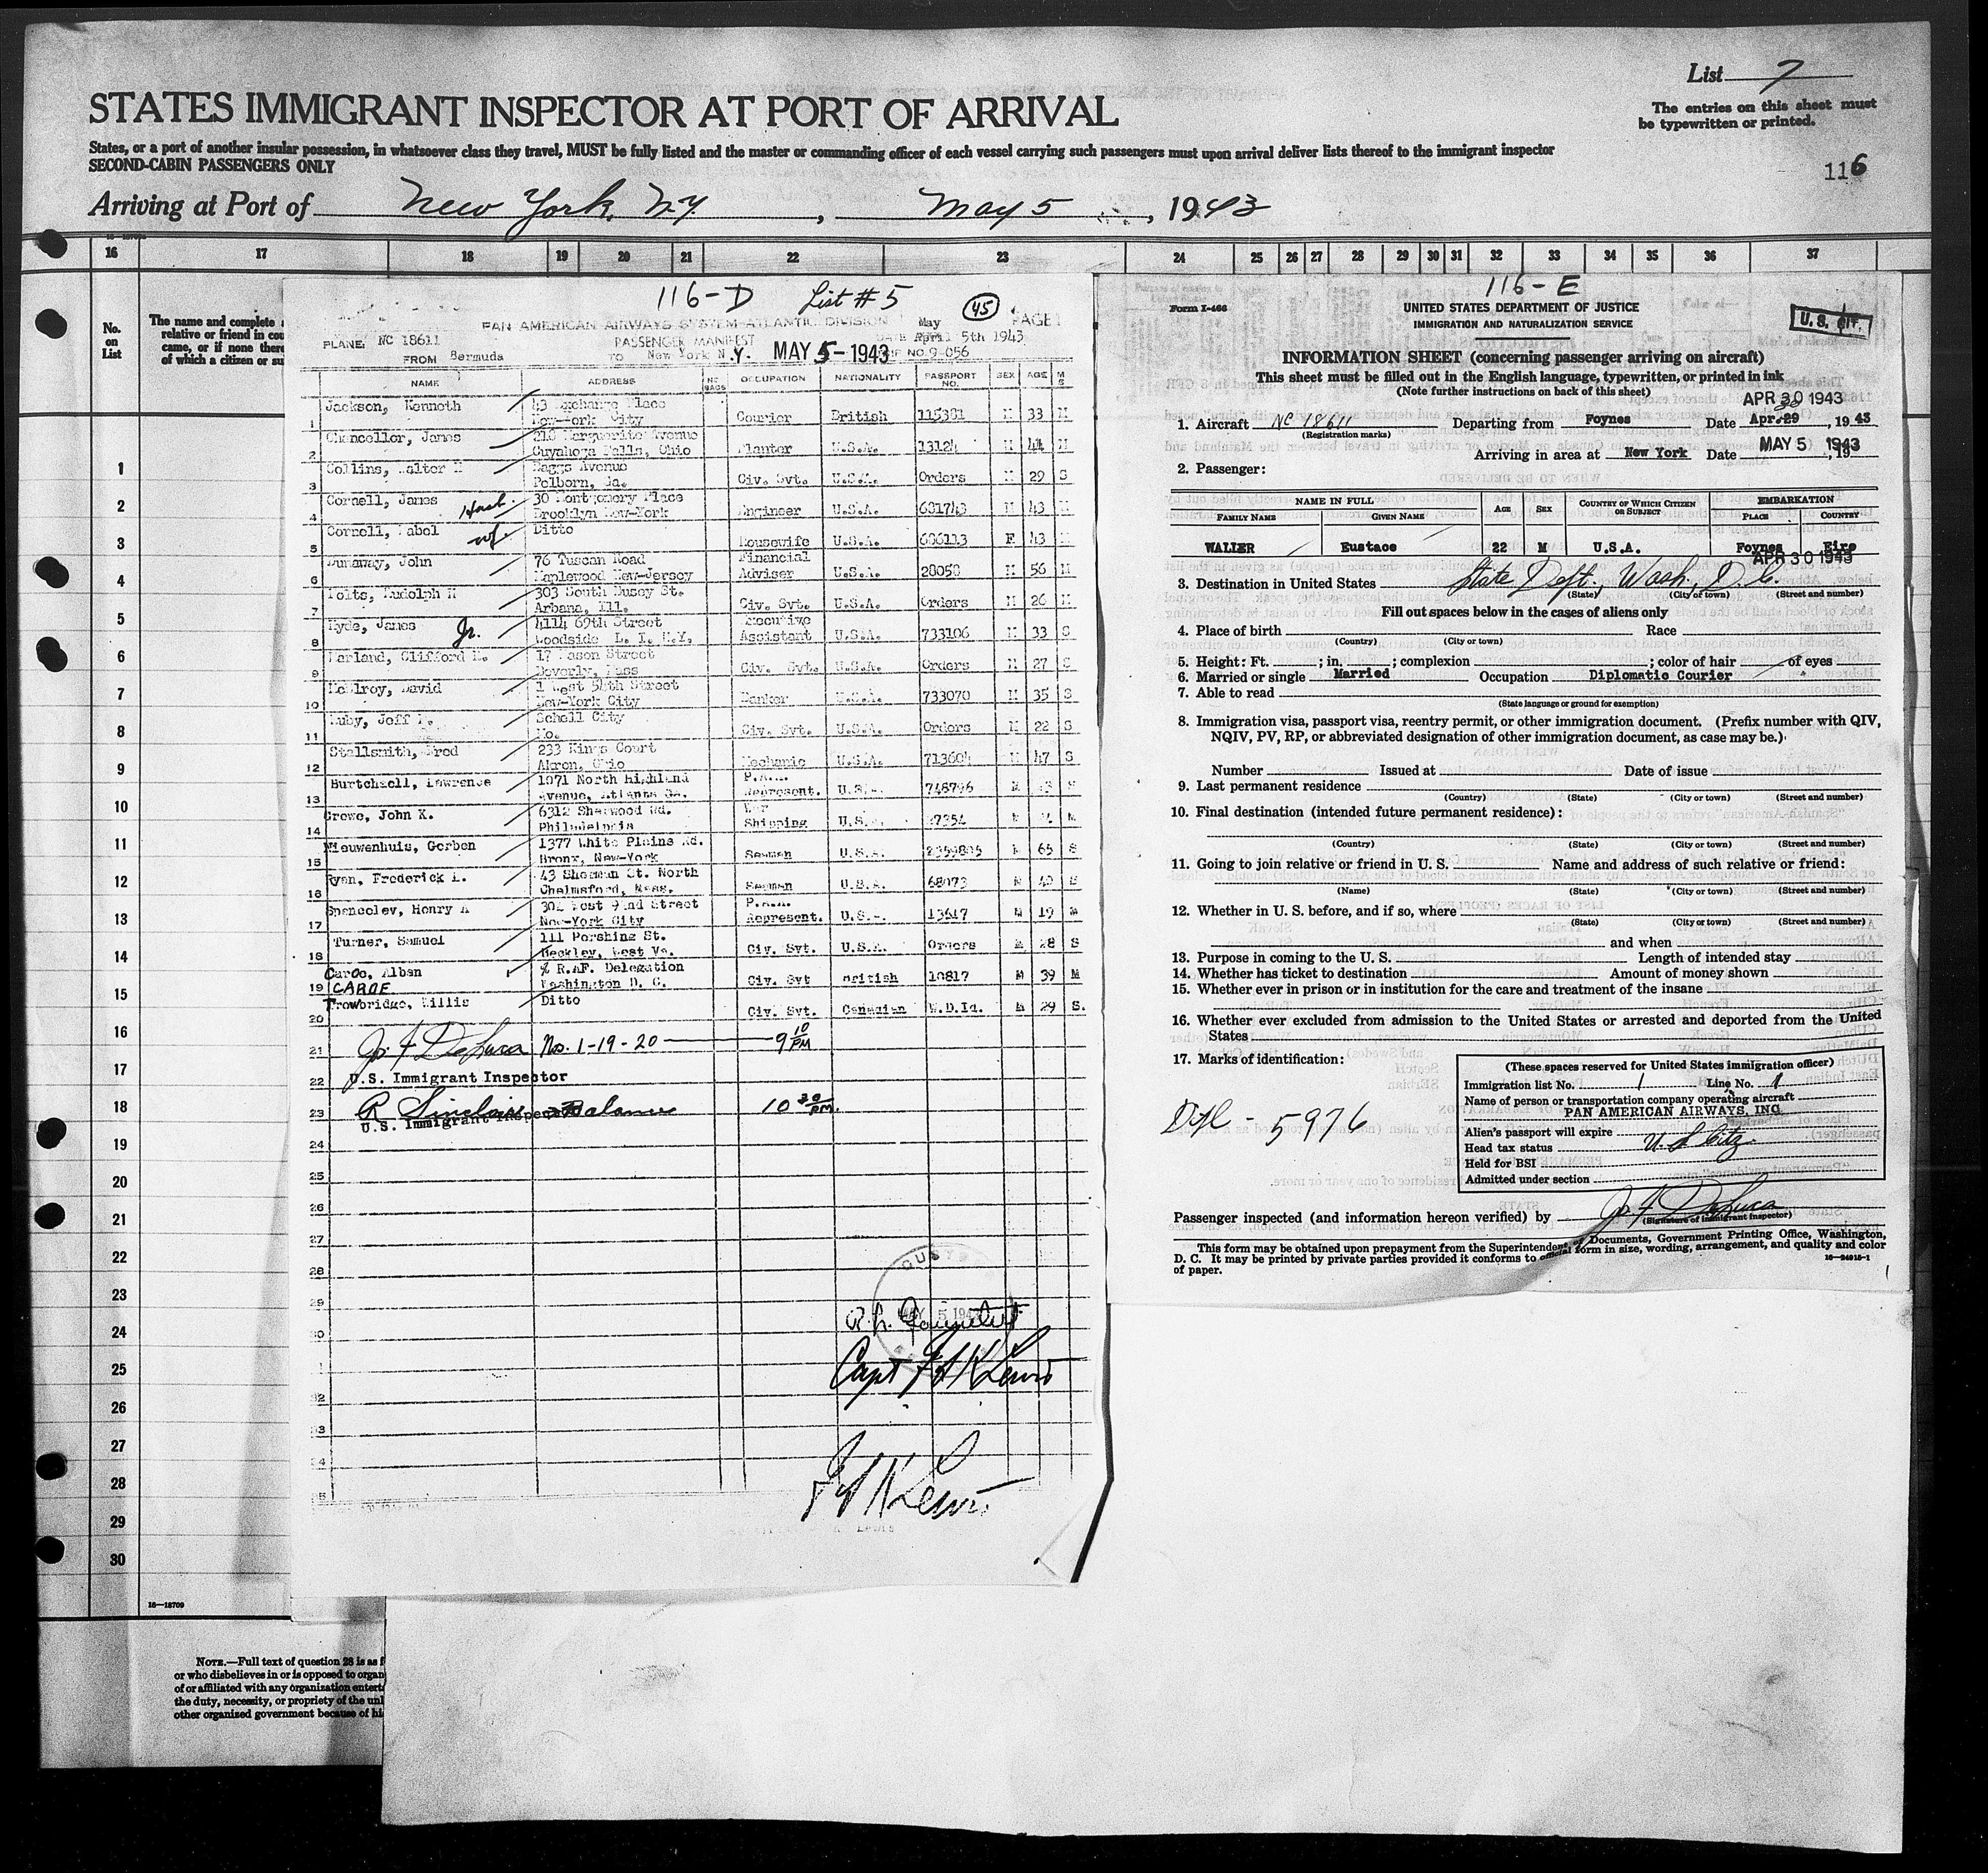 List 7
STATES IMMIGRANT INSPECTOR AT PORT OF ARRIVAL
The entries on this sheet must
be typewritten or printed.
States, or a port of another insular possession, in whatsoever class they travel, MUST be fully listed and the master or commanding officer of each vessel carrying such passengers must upon arrival deliver lists thereof to the immigrant inspector
SECOND-CABIN PASSENGERS ONLY
116
Arriving at Port of New York, N.Y. , May 5 , 1943
16 17 18 19 20 21 22 23 24 25 26 27 28 29 30 31 32 33 34 35 36 37
No.
on
List
The name and complete
relative or friend in cou
came, or if none there
of which a citizen or su
1
2
3
4
5
6
7
8
9
10
11
12
13
14
15
16
17
18
19
20
21
22
23
24
25
26
27
28
29
30
16—18709
NOTE.—Full text of question 28 is as f
or who disbelieves in or is opposed to organ
of or affiliated with any organization entert
the duty, necessity, or propriety of the unl
other organized government because of hi
116-D List #5 45
PAN AMERICAN AIRWAYS SYSTEM-ATLANTIC DIVISION May PAGE 1
PLANE: NC 18611 PASSENGER MANIFEST DATE April 5th 1943
FROM Bermuda TO New York N.Y. MAY 5-1943 NO. 9-056
NAME ADDRESS NO. BAGS OCCUPATION NATIONALITY PASSPORT NO. SEX AGE M S
1 Jackson, Kenneth 43 Exchange Place
New-York City Courier British 115381 M 33 M
2 Chancellor, James 210 Marguerite Avenue
Cuyahoga Falls, Ohio Planter U.S.A. 13124 M 44 M
3 Collins, Walter H Baggs Avenue
Pelborn, Ga. Civ. Svt. U.S.A. Orders M 29 S
4 Cornell, James Husb. 30 Montgomery Place
Brooklyn New-York Engineer U.S.A. 681743 M 43 M
5 Cornell, Mabel wf. Ditto
Housewife U.S.A. 606113 F 43 M
6 Dunaway, John 76 Tuscan Road
Maplewood New-Jersey Financial Adviser U.S.A. 28058 M 56 M
7 Folts, Rudolph H 303 South Busey St.
Arbana, Ill. Civ. Svt. U.S.A. Orders M 26 M
8 Hyde, James Jr. 4114 69th Street
Woodside L. I. N.Y. Executive Assistant U.S.A. 733106 M 33 S
9 Harland, Clifford H. 17 Mason Street
Beverly, Mass Civ. Svt. U.S.A. Orders M 27 S
10 McElroy, David 1 West 54th Street
New-York City Banker U.S.A. 733070 M 35 S
11 Ruby, Jeff Schell City
Mo. Civ. Svt. U.S.A. Orders M 22 S
12 Stellsmith, Fred 233 Kings Court
Akron, Ohio Mechanic U.S.A. 713604 M 47 S
13 Burtchaell, Lawrence 1071 North Highland
Avenue, Atlanta Ga. P.A.A. Represent. U.S.A. 748796 M S
14 Crowe, John K. 6312 Sherwood Rd.
Philadelphia War Shipping U.S.A. 27354 M M
15 Nieuwenhuis, Gerben 1377 White Plains Rd.
Bronx, New-York Seaman U.S.A. 2359805 M 65 S
16 Ryan, Frederick L. 43 Sherman St. North
Chelmsford, Mass. Seaman U.S.A. 68073 M 49 S
17 Spenceley, Henry A 304 West 92nd Street
New-York City P.A.A. Represent. U.S.A. 13617 M 19 M
18 Turner, Samuel 111 Pershing St.
Beckley, West Va. Civ. Svt. U.S.A. Orders M 28 S
19 Caroe, Alban CAROE % R.AF. Delegation
Washington D. C. Civ. Svt British 10817 M 39 M
20 Trowbridge, Willis Ditto
Civ. Svt. Canadian W.D.Id. M 29 S.
21 Jos. F. DeLuca No. 1-19-20 9 10 PM
22 U.S. Immigrant Inspector
23 R Sinclair Balance 10 30 PM.
U.S. Immigrant Inspector
24
25
26
27
28
29
30
MAY 5 1943
Capt F A K Lewis
32
33
34
35
F A K Lewis
116-E
Form I-466
UNITED STATES DEPARTMENT OF JUSTICE
IMMIGRATION AND NATURALIZATION SERVICE
U.S. CIT.
INFORMATION SHEET (concerning passenger arriving on aircraft)
This sheet must be filled out in the English language, typewritten, or printed in ink
(Note further instructions on back of this sheet)
APR 30 1943
1. Aircraft NC 18611 Departing from Foynes Date Apr. 29 30, 1943
(Registration marks)
Arriving in area at New York Date MAY 5 1943, 19
2. Passenger:
NAME IN FULL AGE SEX COUNTRY OF WHICH CITIZEN OR SUBJECT EMBARKATION
FAMILY NAME GIVEN NAME PLACE COUNTRY
WALLER Eustace 22 M U.S.A. Foynes Eire
APR 30 1943
3. Destination in United States State Dept., Wash. D. C.
(State) (City or town) (Street and number)
Fill out spaces below in the cases of aliens only
4. Place of birth Race
(Country) (City or town)
5. Height: Ft. ; in. ; complexion ; color of hair of eyes
6. Married or single Married Occupation Diplomatic Courier
7. Able to read
(State language or ground for exemption)
8. Immigration visa, passport visa, reentry permit, or other immigration document. (Prefix number with QIV,
NQIV, PV, RP, or abbreviated designation of other immigration document, as case may be.)
Number Issued at Date of issue
9. Last permanent residence
(Country) (State) (City or town) (Street and number)
10. Final destination (intended future permanent residence):
(Country) (State) (City or town) (Street and number)
11. Going to join relative or friend in U. S. Name and address of such relative or friend:
(Name) (State) (City or town) (Street and number)
12. Whether in U. S. before, and if so, where
(State) (City or town) (Street and number)
and when
13. Purpose in coming to the U. S. Length of intended stay
14. Whether has ticket to destination Amount of money shown
15. Whether ever in prison or in institution for the care and treatment of the insane
16. Whether ever excluded from admission to the United States or arrested and deported from the United
States
17. Marks of identification:
5976
(These spaces reserved for United States immigration officer)
Immigration list No. 1 Line No. 1
Name of person or transportation company operating aircraft
PAN AMERICAN AIRWAYS, INC
Alien's passport will expire
Head tax status U. S. Citz.
Held for BSI
Admitted under section
Passenger inspected (and information hereon verified) by Jos. F. DeLuca
(Signature of Immigrant Inspector)
This form may be obtained upon prepayment from the Superintendent of Documents, Government Printing Office, Washington,
D. C. It may be printed by private parties provided it conforms to official form in size, wording, arrangement, and quality and color
of paper.
16—24915-1